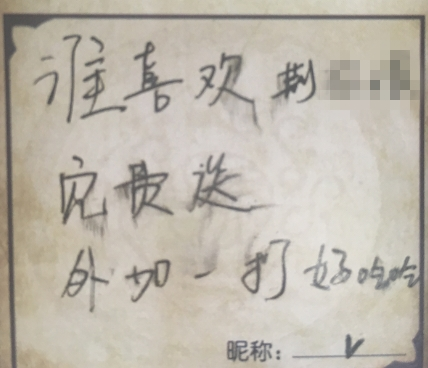 谁喜欢荆
免费送
外加一打好吃吃
昵称：V